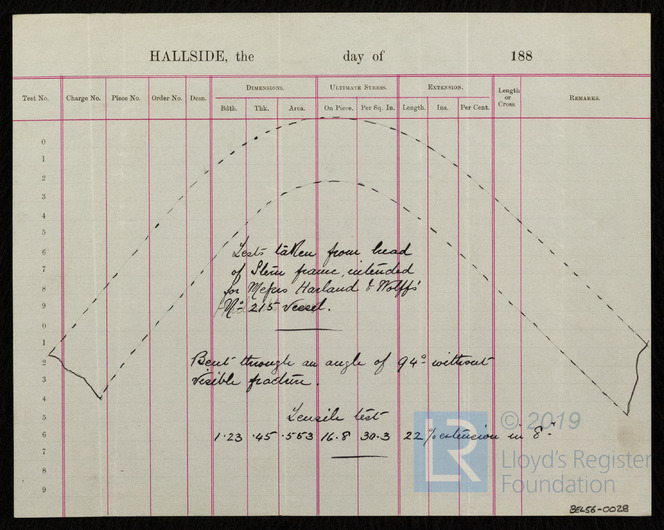 HALLSIDE, the day of 188
Test No. Charge No. Piece No. Order No. Desn. DIMENSIONS. ULTIMATE STRESS. EXTENSION. Length or Cross REMARKS.
Bdth. Thk. Area. On Piece. Per Sq. In. Length. Ins. Per Cent.
0
1
2
3
4
5
6
7
8
9
0
1
2
3
4
5
6
7
8
9
Tests taken from head
of Stern frame, intended
for Messrs Harland & Wolff's
No 215 Vessel.
Bent through an angle of 94° without
visible fracture.
Tensile test
1.23 .45 .553 16.8 30.3 22 % extension in 8"
LR
© 2019
Lloyd's Register
Foundation
BEL56-0028